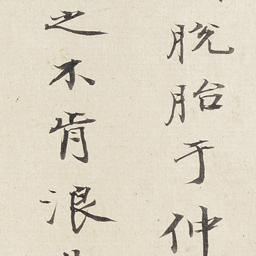 脫胎于仲
之不肯浪